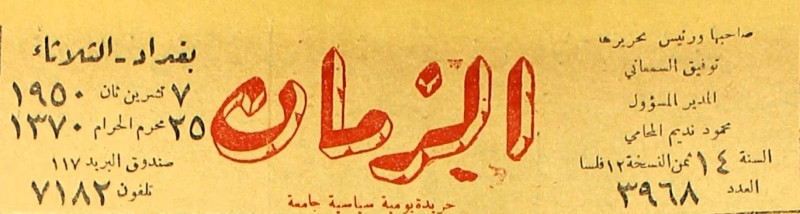 صاحبها ورئيس تحريرها
توفيق السمعاني
المدير المسؤول
محمود نديم المحامي
السنة ١٤ ثمن النسخة ١٢ فلسا
العدد ٣٩٦٨
الزمان
جريدة يومية سياسية جامعة
بغداد - الثلاثاء
٧ تشرين ثان ١٩٥٠
٢٥ محرم الحرام ١٣٧٠
صندوق البريد ١١٧
تلفون ٧١٨٢